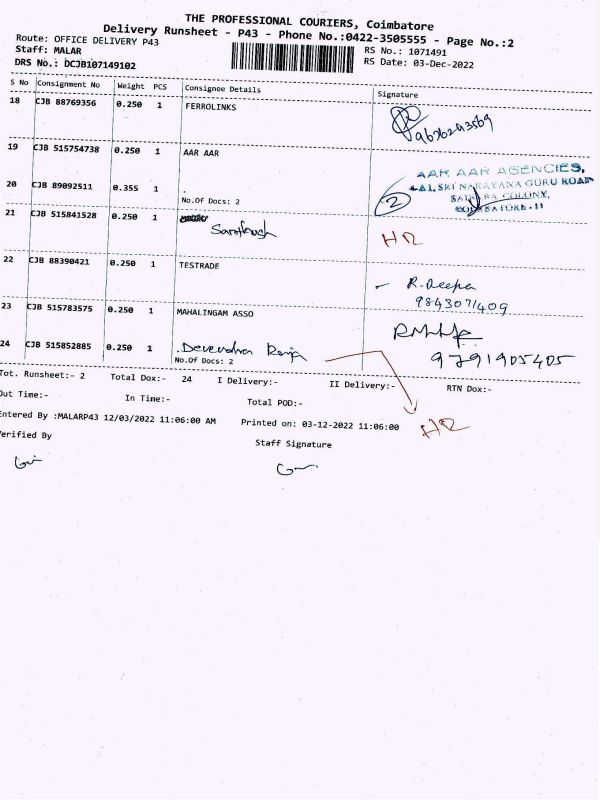 THE PROFESSIONAL COURIERS, Coimbatore
Delivery Runsheet - P43 - Phone No.:0422-3505555 - Page No.:2
Route: OFFICE DELIVERY P43
RS No.: 1071491
Staff: MALAR
RS Date: 03-Dec-2022
DRS No.: DCJB107149102
S No Consignment No Weight PCS Consignee Details Signature
18 CJB 88769356 0.250 1 FERROLINKS
19 CJB 515754738 0.250 1 AAR AAR
AAR AAR AGENCIES,
SRI NARAYANA GURU ROAD
COLONY,
COIMBATORE-11
20 CJB 89092511 0.355 1 .
No.Of Docs: 2
2
21 CJB 515841528 0.250 1
HR
22 CJB 88390421 0.250 1 TESTRADE
R. Deepa
9843071409
23 CJB 515783575 0.250 1 MAHALINGAM ASSO
24 CJB 515852885 0.250 1 .Devendra Raja
9791905405
No.Of Docs: 2
Tot. Runsheet:- 2 Total Dox:- 24 I Delivery:- II Delivery:- RTN Dox:-
Out Time:- In Time:- Total POD:-
HR
Entered By :MALARP43 12/03/2022 11:06:00 AM Printed on: 03-12-2022 11:06:00
Verified By Staff Signature